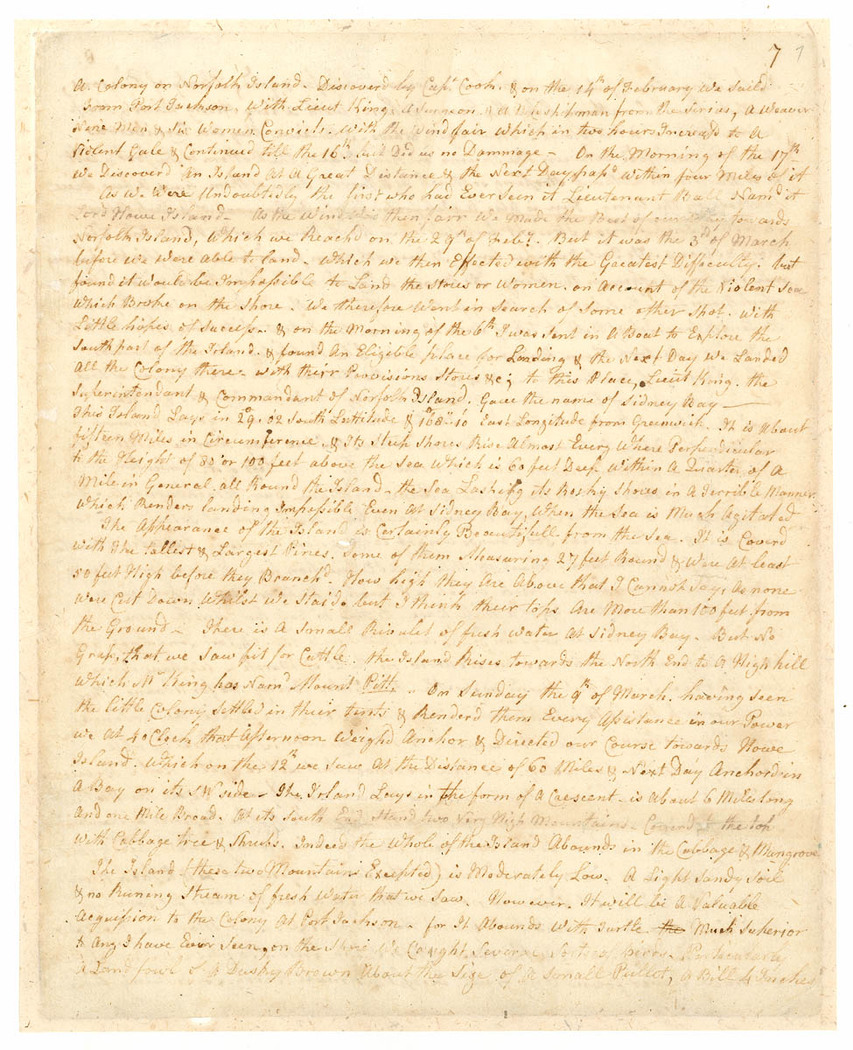 7 7
A Colony on Norfolk Island. Discoverd by Capt Cook. & on the 14th of February we Saild
from Port Jackson. With Lieut King, A Surgeon & A Midshipman from the Sirius, A Weaver
Nine Men & Six Women Convicts. With the Wind fair which in two hours Increasd to A
Violent Gale & Continued till the 16th but Did us no Dammage - On the Morning of the 17th
We Discoverd An Island At A Great Distance & the Next Day pass'd within four Miles of it
As we Were Undoubtedly the first who had Ever Seen it Lieutenant Ball Namd it
Lord Howe Island - As the Wind was then fair We Made the Best of our Way towards
Norfolk Island, Which we Reachd on the 29th of Feby. But it was the 3d of March
before we Were able to Land. Which we then Effected with the Greatest Difficulty. but
found it would be Impossible to Land the Stores or Women. on Account of the Violent Sea
Which Broke on the Shore. We therefore Went in Search of Some other Spot. With
Little hopes of Success. & on the Morning of the 6th I was Sent in A Boat to Explore the
South part of the Island. & found An Eligible place for Landing & the Next Day we Landed
All the Colony there. with their Provisions Stores &c; to this Place, Lieut King. the
Superintendant & Commandant of Norfolk Island. Gave the name of Sidney Bay —
This Island Lays in 29.02 South Lattitude & 168..10 East Longitude from Greenwich. It is About
fifteen Miles in Circumference & Its Steep Shores Rise Almost Every Where Perpendicular
to the Height of 80 or 100 feet above the Sea Which is 60 feet Deep Within A Quarter of A
Mile in General all Round the Island - the Sea Lashing its Rocky Shores in A Terrible Manner
Which Renders landing Impossible Even At Sidney Bay, When the Sea is Much Agitated
The Appearance of the Island is Certainly Beautifull from the Sea. It is Coverd
with the tallest & Largest Pines. Some of them Measuring 27 feet Round & Were At least
80 feet High before they Branchd. How high they Are Above that I Cannot Say, As none
Were Cut Down Whilst we Staid. but I think their tops Are More than 100 feet from
the Ground - There is A Small Rivulet of fresh Water At Sidney Bay. But No
Grass, that we Saw fit for Cattle. the Island Rises towards the North End to A High hill
Which Mr King has Namd Mount Pitt. - On Sunday the 9th of March. having Seen
the little Colony Settled in their tents & Renderd them Every Assistance in our Power
we At 4 oClock that Afternoon Weighd Anchor & Directed our Course towards Howe
Island. Which on the 12th we Saw At the Distance of 60 Miles & Next Day Anchord in
A Bay on its SW side - The Island Lays in the form of A Crescent - is About 6 Miles long
And one Mile Broad. At its South End Stand two Very High Mountains - Coverd to the top
With Cabbage tree & Shrubs. Indeed the Whole of the Island Abounds in the Cabbage & Mangrove
The Island (these two Mountains Excepted) is Moderately Low. A Light Sandy Soil
& no Runing Stream of fresh Water that we Saw. However. It will be A Valuable
Acquisition to the Colony At Port Jackson - for It Abounds With turtle the Much Superior
to Any I have Ever Seen, on the Shore We Caught Several Sorts of Birds. Particularly
A Land fowl of A Dusky Brown About the Size of A Small Pullet, A Bill 4 Inches